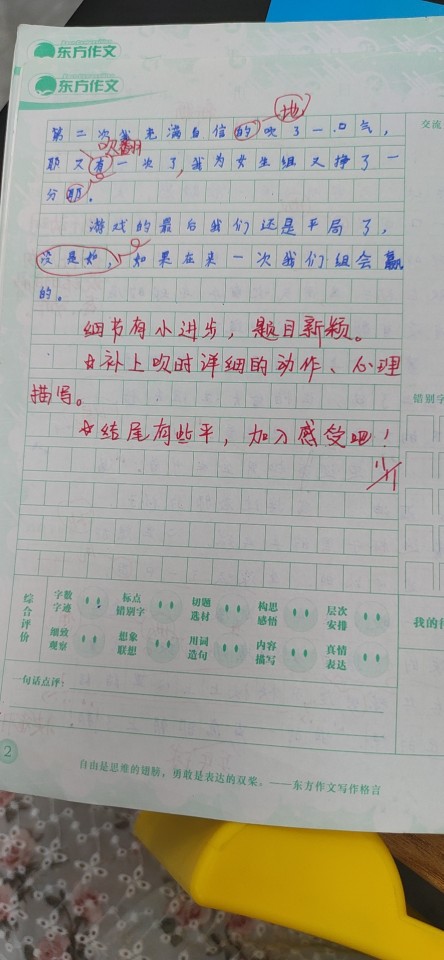 东方作文
东方作文
地
交流
第二次我充满自信的吹了一口气，
吹翻
耶又有一次了，我为女生组又挣了一
分耶。
游戏的最后我们还是平局了，
没是如，如果在来一次我们组会赢
的。
细节有小进步，题目新颖。
☆补上吹时详细的动作、心理
描写。
☆结尾有些平，加入感受吧！
错别字
综合评价
字数字迹
标点错别字
切题选材
构思感悟
层次安排
细致观察
想象联想
用词造句
内容描写
真情表达
我的
一句话点评：
2
自由是思维的翅膀，勇敢是表达的双桨。——东方作文写作格言